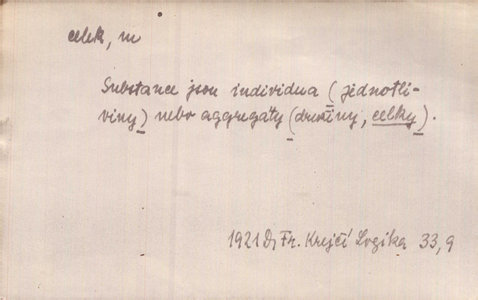 celek, m
Substance jsou individua (jednotli-
viny) nebo aggregáty (družiny, celky).
1921 Dr Fr. Krejčí Logika 33,9